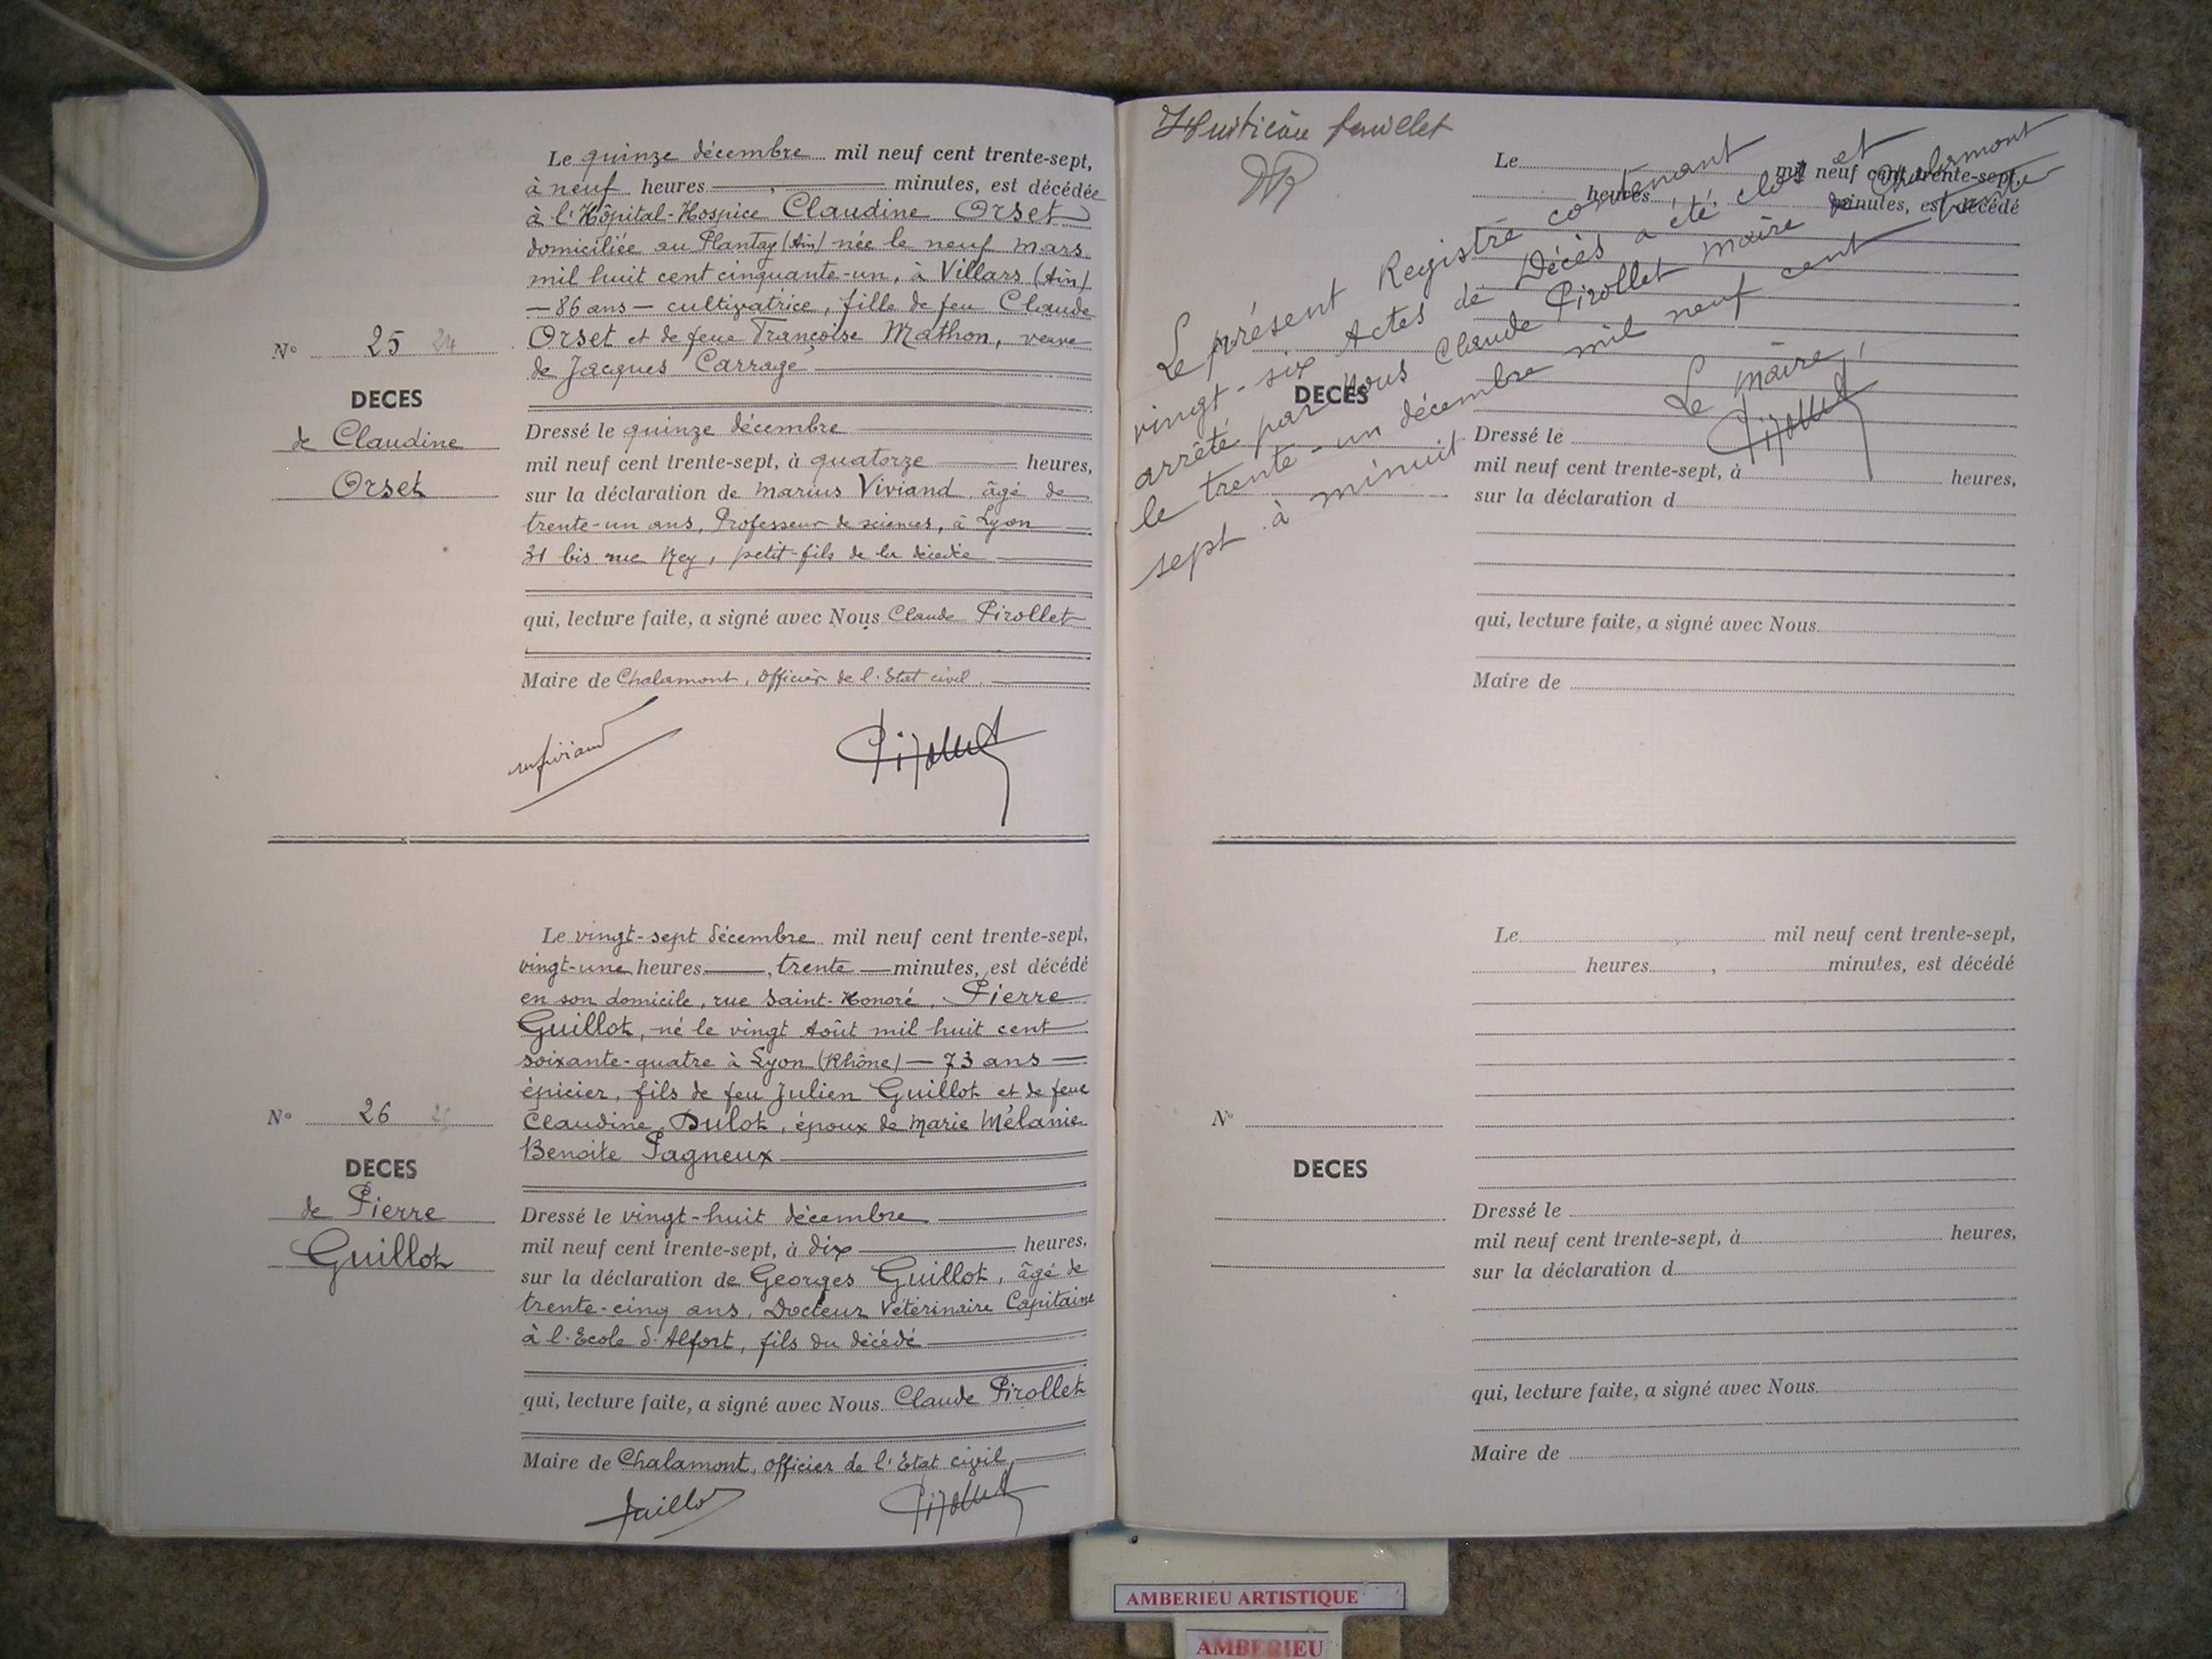 Le quinze décembre mil neuf cent trente-sept,
à neuf heures , minutes, est décédée
à l'Hôpital-Hospice Claudine Orset
domiciliée au Plantay (Ain) née le neuf mars
mil huit cent cinquante-un, à Villars (Ain)
— 86 ans — cultivatrice, fille de feu Claude
Orset et de feue Françoise Mathon, veuve
de Jacques Carrage
N° 25 24
DECES
de Claudine
Orset
Dressé le quinze décembre
mil neuf cent trente-sept, à quatorze heures,
sur la déclaration de Marius Viviand, âgé de
trente-un ans, Professeur de sciences, à Lyon
31 bis rue Ney, petit-fils de la décédée
qui, lecture faite, a signé avec Nous Claude Pirollet
Maire de Chalamont, Officier de l'Etat civil
Le vingt-sept décembre mil neuf cent trente-sept,
vingt-une heures , trente minutes, est décédé
en son domicile, rue Saint-Honoré, Pierre
Guillot, né le vingt Août mil huit cent
soixante-quatre à Lyon (Rhône) — 73 ans —
épicier, fils de feu Julien Guillot et de feue
Claudine Dulot, époux de Marie Mélanie
Benoite Pagneux
N° 26
DECES
de Pierre
Guillot
Dressé le vingt-huit décembre
mil neuf cent trente-sept, à dix heures,
sur la déclaration de Georges Guillot, âgé de
trente-cinq ans, Docteur Vétérinaire Capitaine
à l'Ecole d'Alfort, fils du décédé
qui, lecture faite, a signé avec Nous Claude Pirollet
Maire de Chalamont, officier de l'Etat civil
Guillot
Huitième feuillet
Le mil neuf cent trente-sept,
heures minutes, est décédé
Le présent Registre contenant
vingt-six Actes de Décès a été clos et
arrêté par nous Claude Pirollet Maire de Chalamont
le trente-un décembre mil neuf cent trente
sept à minuit
Le Maire,
DECES
Dressé le
mil neuf cent trente-sept, à heures,
sur la déclaration d
qui, lecture faite, a signé avec Nous
Maire de
Le mil neuf cent trente-sept,
heures , minutes, est décédé
N°
DECES
Dressé le
mil neuf cent trente-sept, à heures,
sur la déclaration d
qui, lecture faite, a signé avec Nous
Maire de
AMBERIEU ARTISTIQUE
AMBERIEU